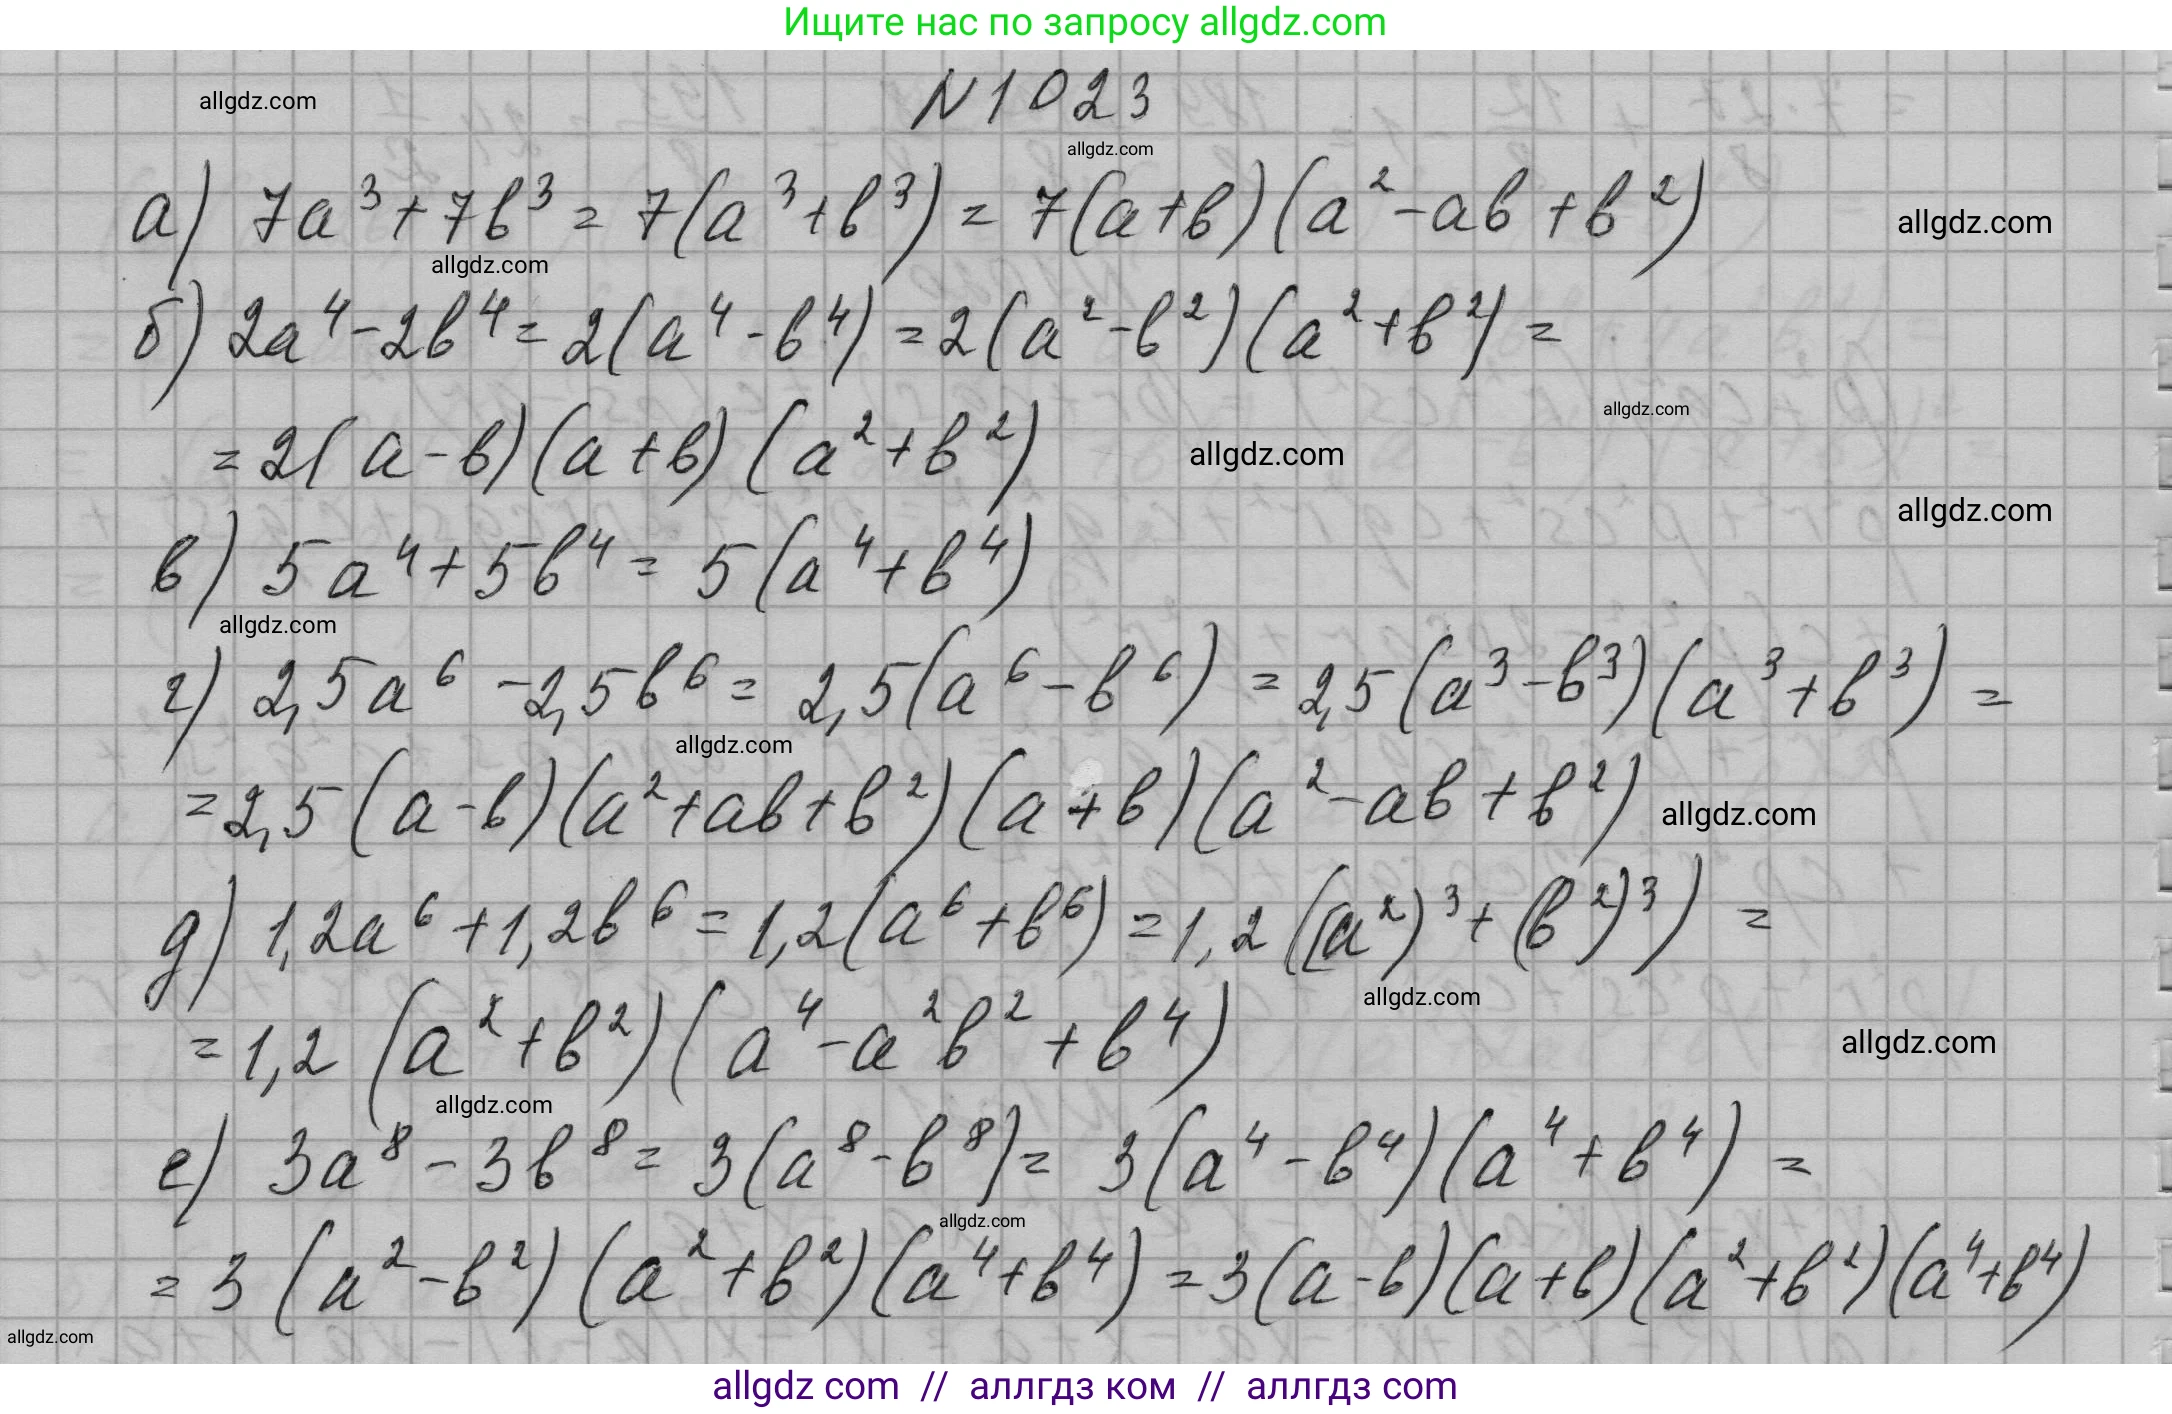 Ищите нас по запросу allgdz.com
allgdz.com
N 1023
allgdz.com
а) 7a³+7b³=7(a³+b³)=7(a+b)(a²-ab+b²)
allgdz.com
allgdz.com
б) 2a⁴-2b⁴=2(a⁴-b⁴)=2(a²-b²)(a²+b²)=
allgdz.com
=2(a-b)(a+b)(a²+b²)
allgdz.com
allgdz.com
в) 5a⁴+5b⁴=5(a⁴+b⁴)
allgdz.com
г) 2,5a⁶-2,5b⁶=2,5(a⁶-b⁶)=2,5(a³-b³)(a³+b³)=
allgdz.com
=2,5(a-b)(a²+ab+b²)(a+b)(a²-ab+b²)
allgdz.com
д) 1,2a⁶+1,2b⁶=1,2(a⁶+b⁶)=1,2((a²)³+(b²)³)=
allgdz.com
=1,2(a²+b²)(a⁴-a²b²+b⁴)
allgdz.com
allgdz.com
е) 3a⁸-3b⁸=3(a⁸-b⁸)=3(a⁴-b⁴)(a⁴+b⁴)=
allgdz.com
=3(a²-b²)(a²+b²)(a⁴+b⁴)=3(a-b)(a+b)(a²+b²)(a⁴+b⁴)
allgdz.com
allgdz com // аллгдз ком // аллгдз com